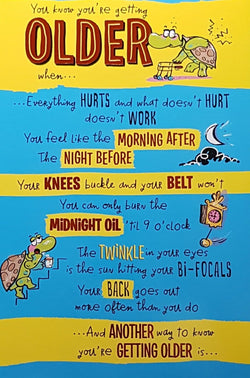 You know you're getting
OLDER
when...
...Everything HURTS and what doesn't HURT
doesn't WORK
You feel like the MORNING AFTER
The NIGHT BEFORE
Your KNEES buckle and your BELT won't
You can only burn the
MiDNiGHT OiL 'til 9 o'clock
The TWiNKLE in your eyes
is the sun hitting your Bi-FOCALS
Your BACK goes out
more often than you do
...And ANOTHER way to know
you're GETTING OLDER is...